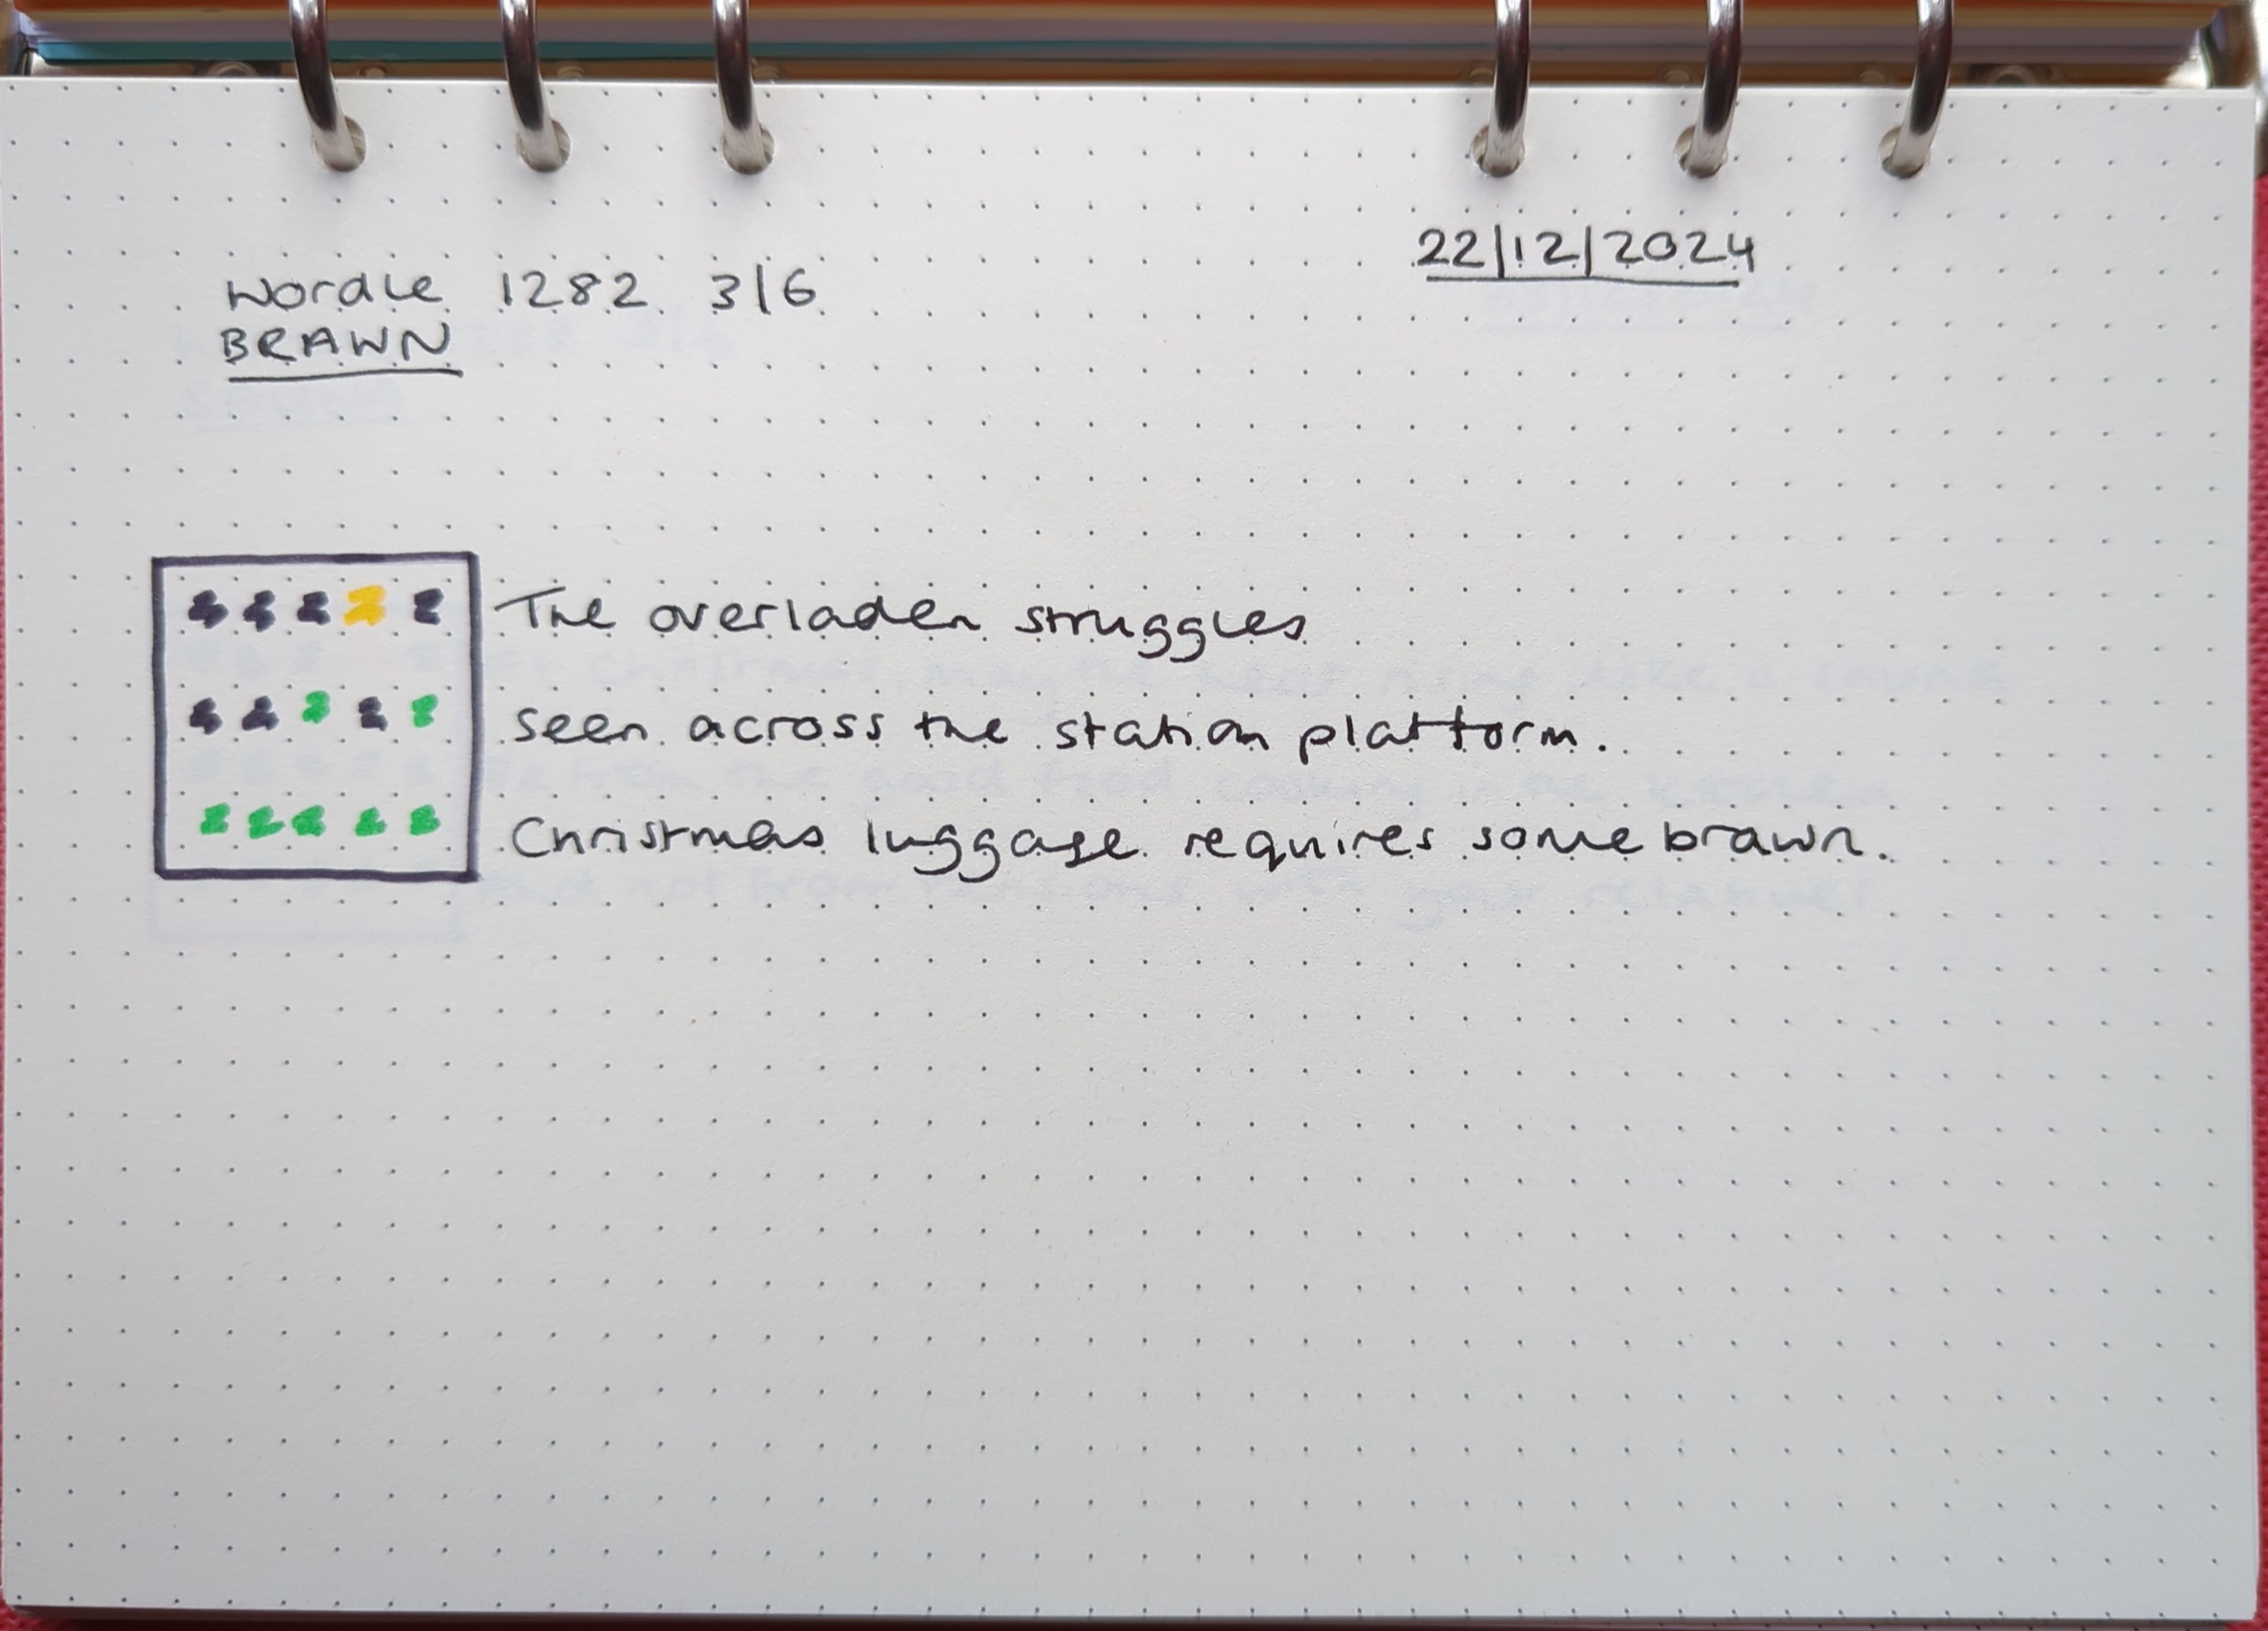 22/12/2024
Wordle 1282 3/6
BRAWN
The overladen struggles
seen across the station platform.
Christmas luggage requires some brawn.